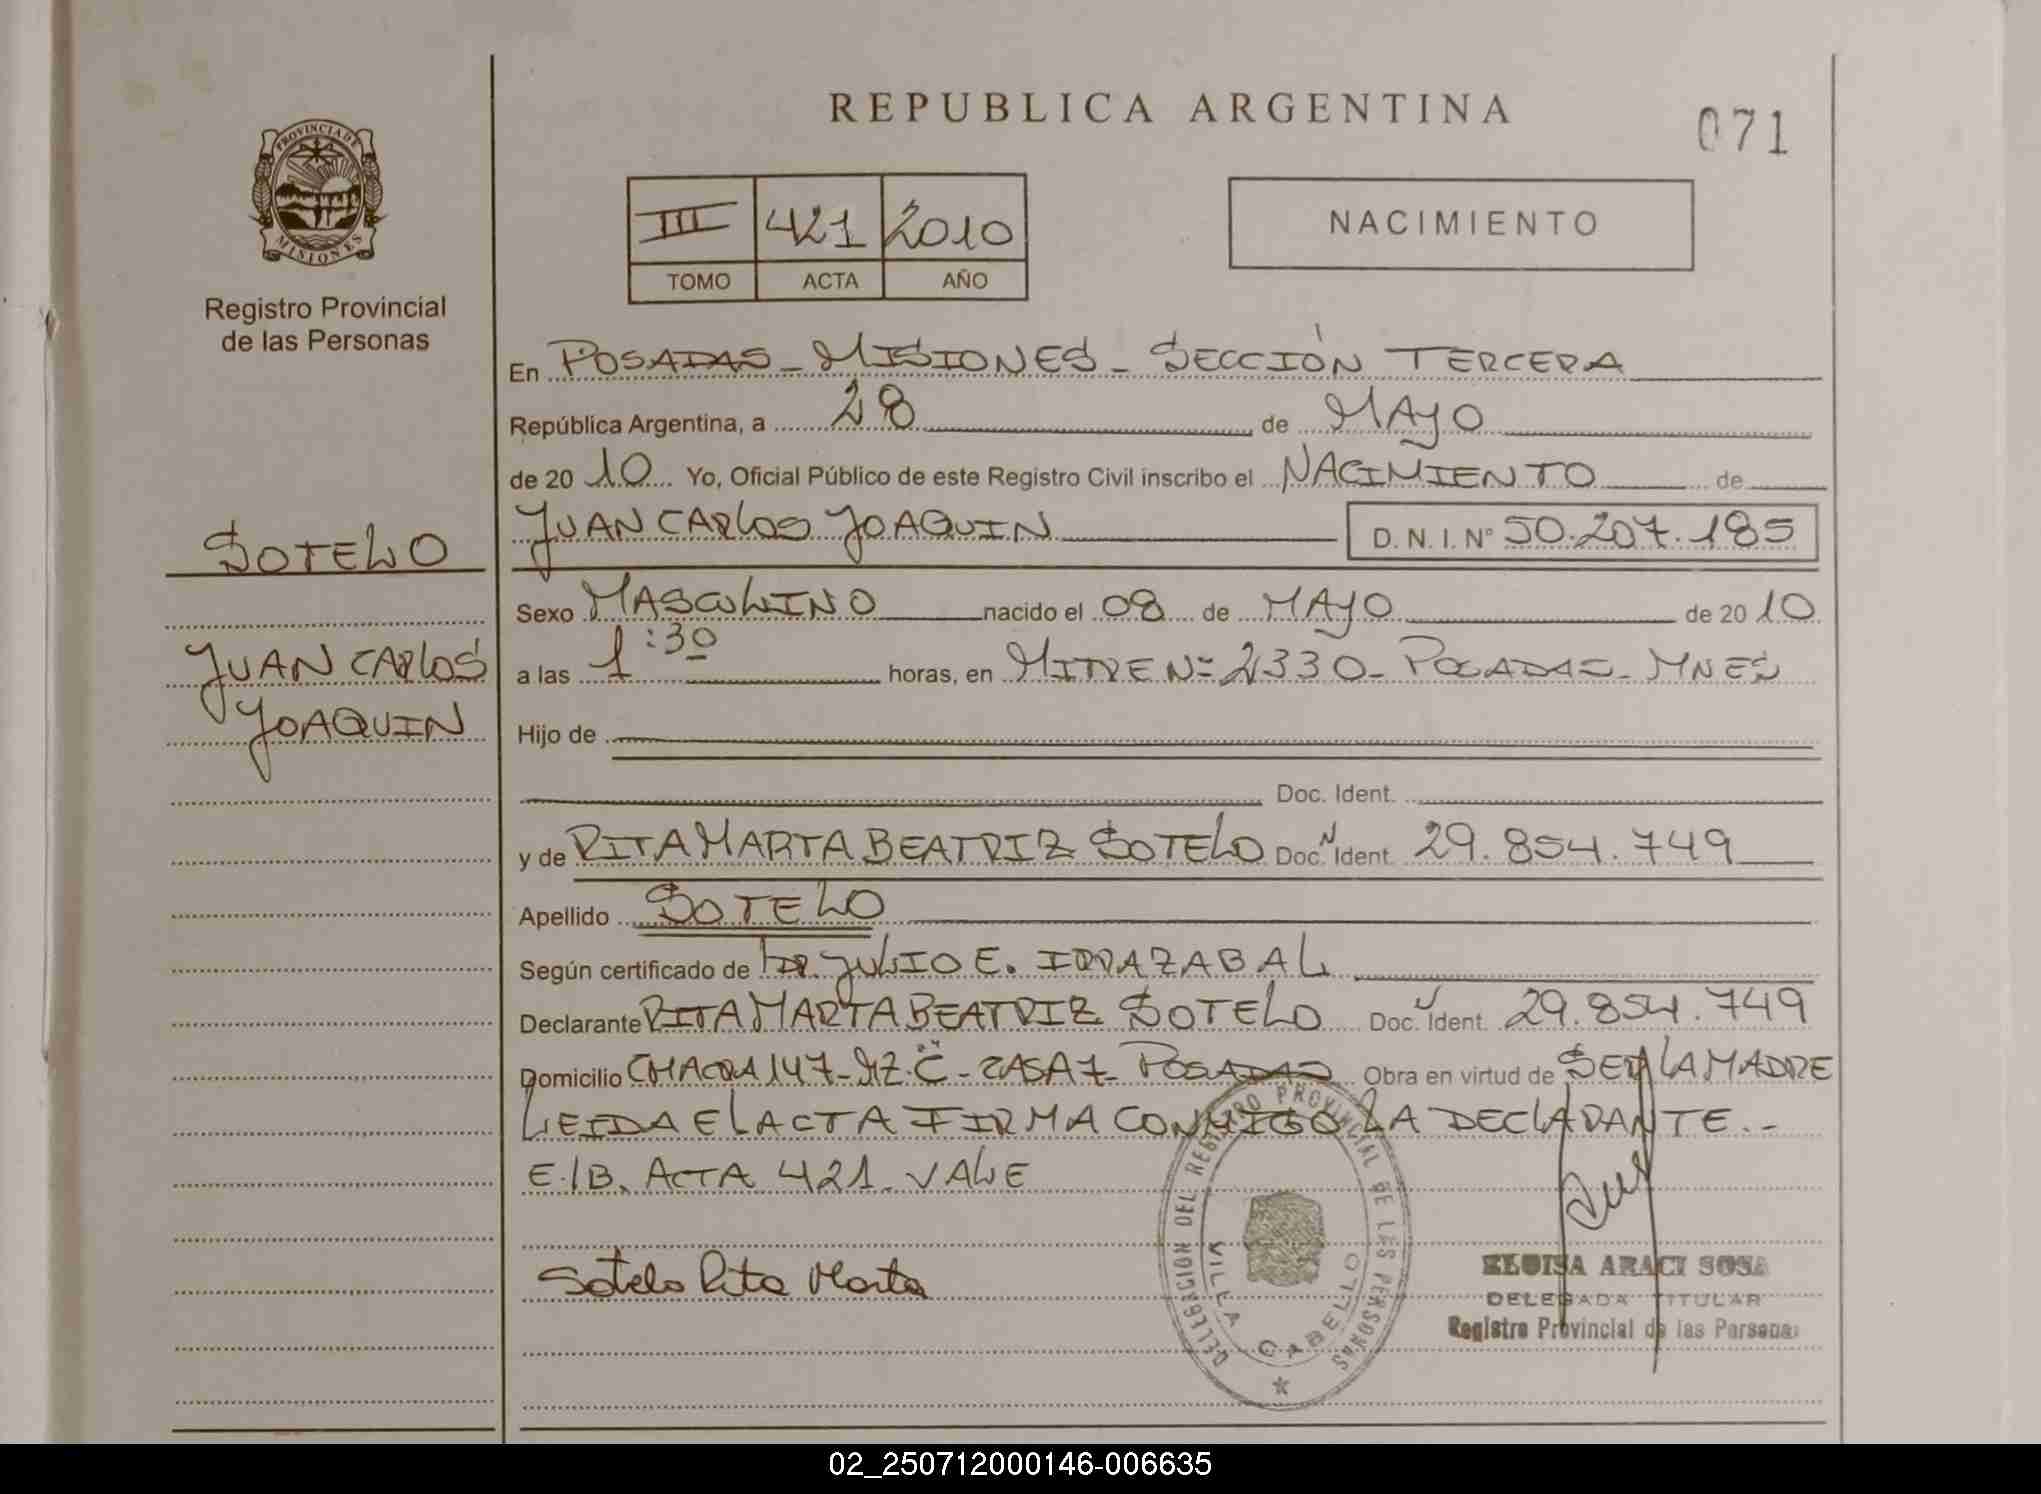 REPUBLICA ARGENTINA
071
PROVINCIA DE
MISIONES
Registro Provincial
de las Personas
III 421 2010
TOMO ACTA AÑO
NACIMIENTO
En POSADAS - MISIONES - SECCIÓN TERCERA
República Argentina, a 28 de MAYO
de 20 10 Yo, Oficial Público de este Registro Civil inscribo el NACIMIENTO de
JUAN CARLOS JOAQUIN D. N. I. N° 50.207.185
SOTELO
JUAN CARLOS
JOAQUIN
Sexo MASCULINO nacido el 08 de MAYO de 20 10
a las 1:30 horas, en MITRE N= 2330 - POSADAS - MNES
Hijo de
Doc. Ident.
y de RITA MARTA BEATRIZ SOTELO Doc. N Ident. 29.854.749
Apellido SOTELO
Según certificado de DR. JULIO E. IRRAZABAL
Declarante RITA MARTA BEATRIZ SOTELO Doc. Ident. 29.854.749
Domicilio CHACRA 147 - MZ. "C" - CASA 7 - POSADAS Obra en virtud de SER LA MADRE
LEIDA EL ACTA FIRMA CONMIGO LA DECLARANTE.-
E/B. ACTA 421. VALE
Sotelo Rita Marta
DELEGACION DEL REGISTRO PROVINCIAL DE LAS PERSONAS
VILLA CABELLO
ELOISA ARACI SOSA
DELEGADA TITULAR
Registro Provincial de las Personas
02_250712000146-006635